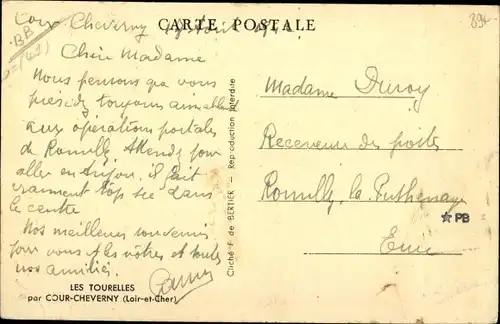 CARTE POSTALE
894
BB
Cour Cheverny
Chère Madame
Nous pensons que vous
présidez toujours
aux opérations postales
de Romilly. Attendez pour
aller en Anjou, il fait
vraiment trop sec dans
le centre
Nos meilleurs souvenirs
pour vous & les vôtres et toutes
nos amitiés.
LES TOURELLES
par COUR-CHEVERNY (Loir-et-Cher)
Cliché F. de BERTIER — Reproduction interdite
Madame Duroy
Receveuse des postes
Romilly la Puthenaye
★ PB
Eure